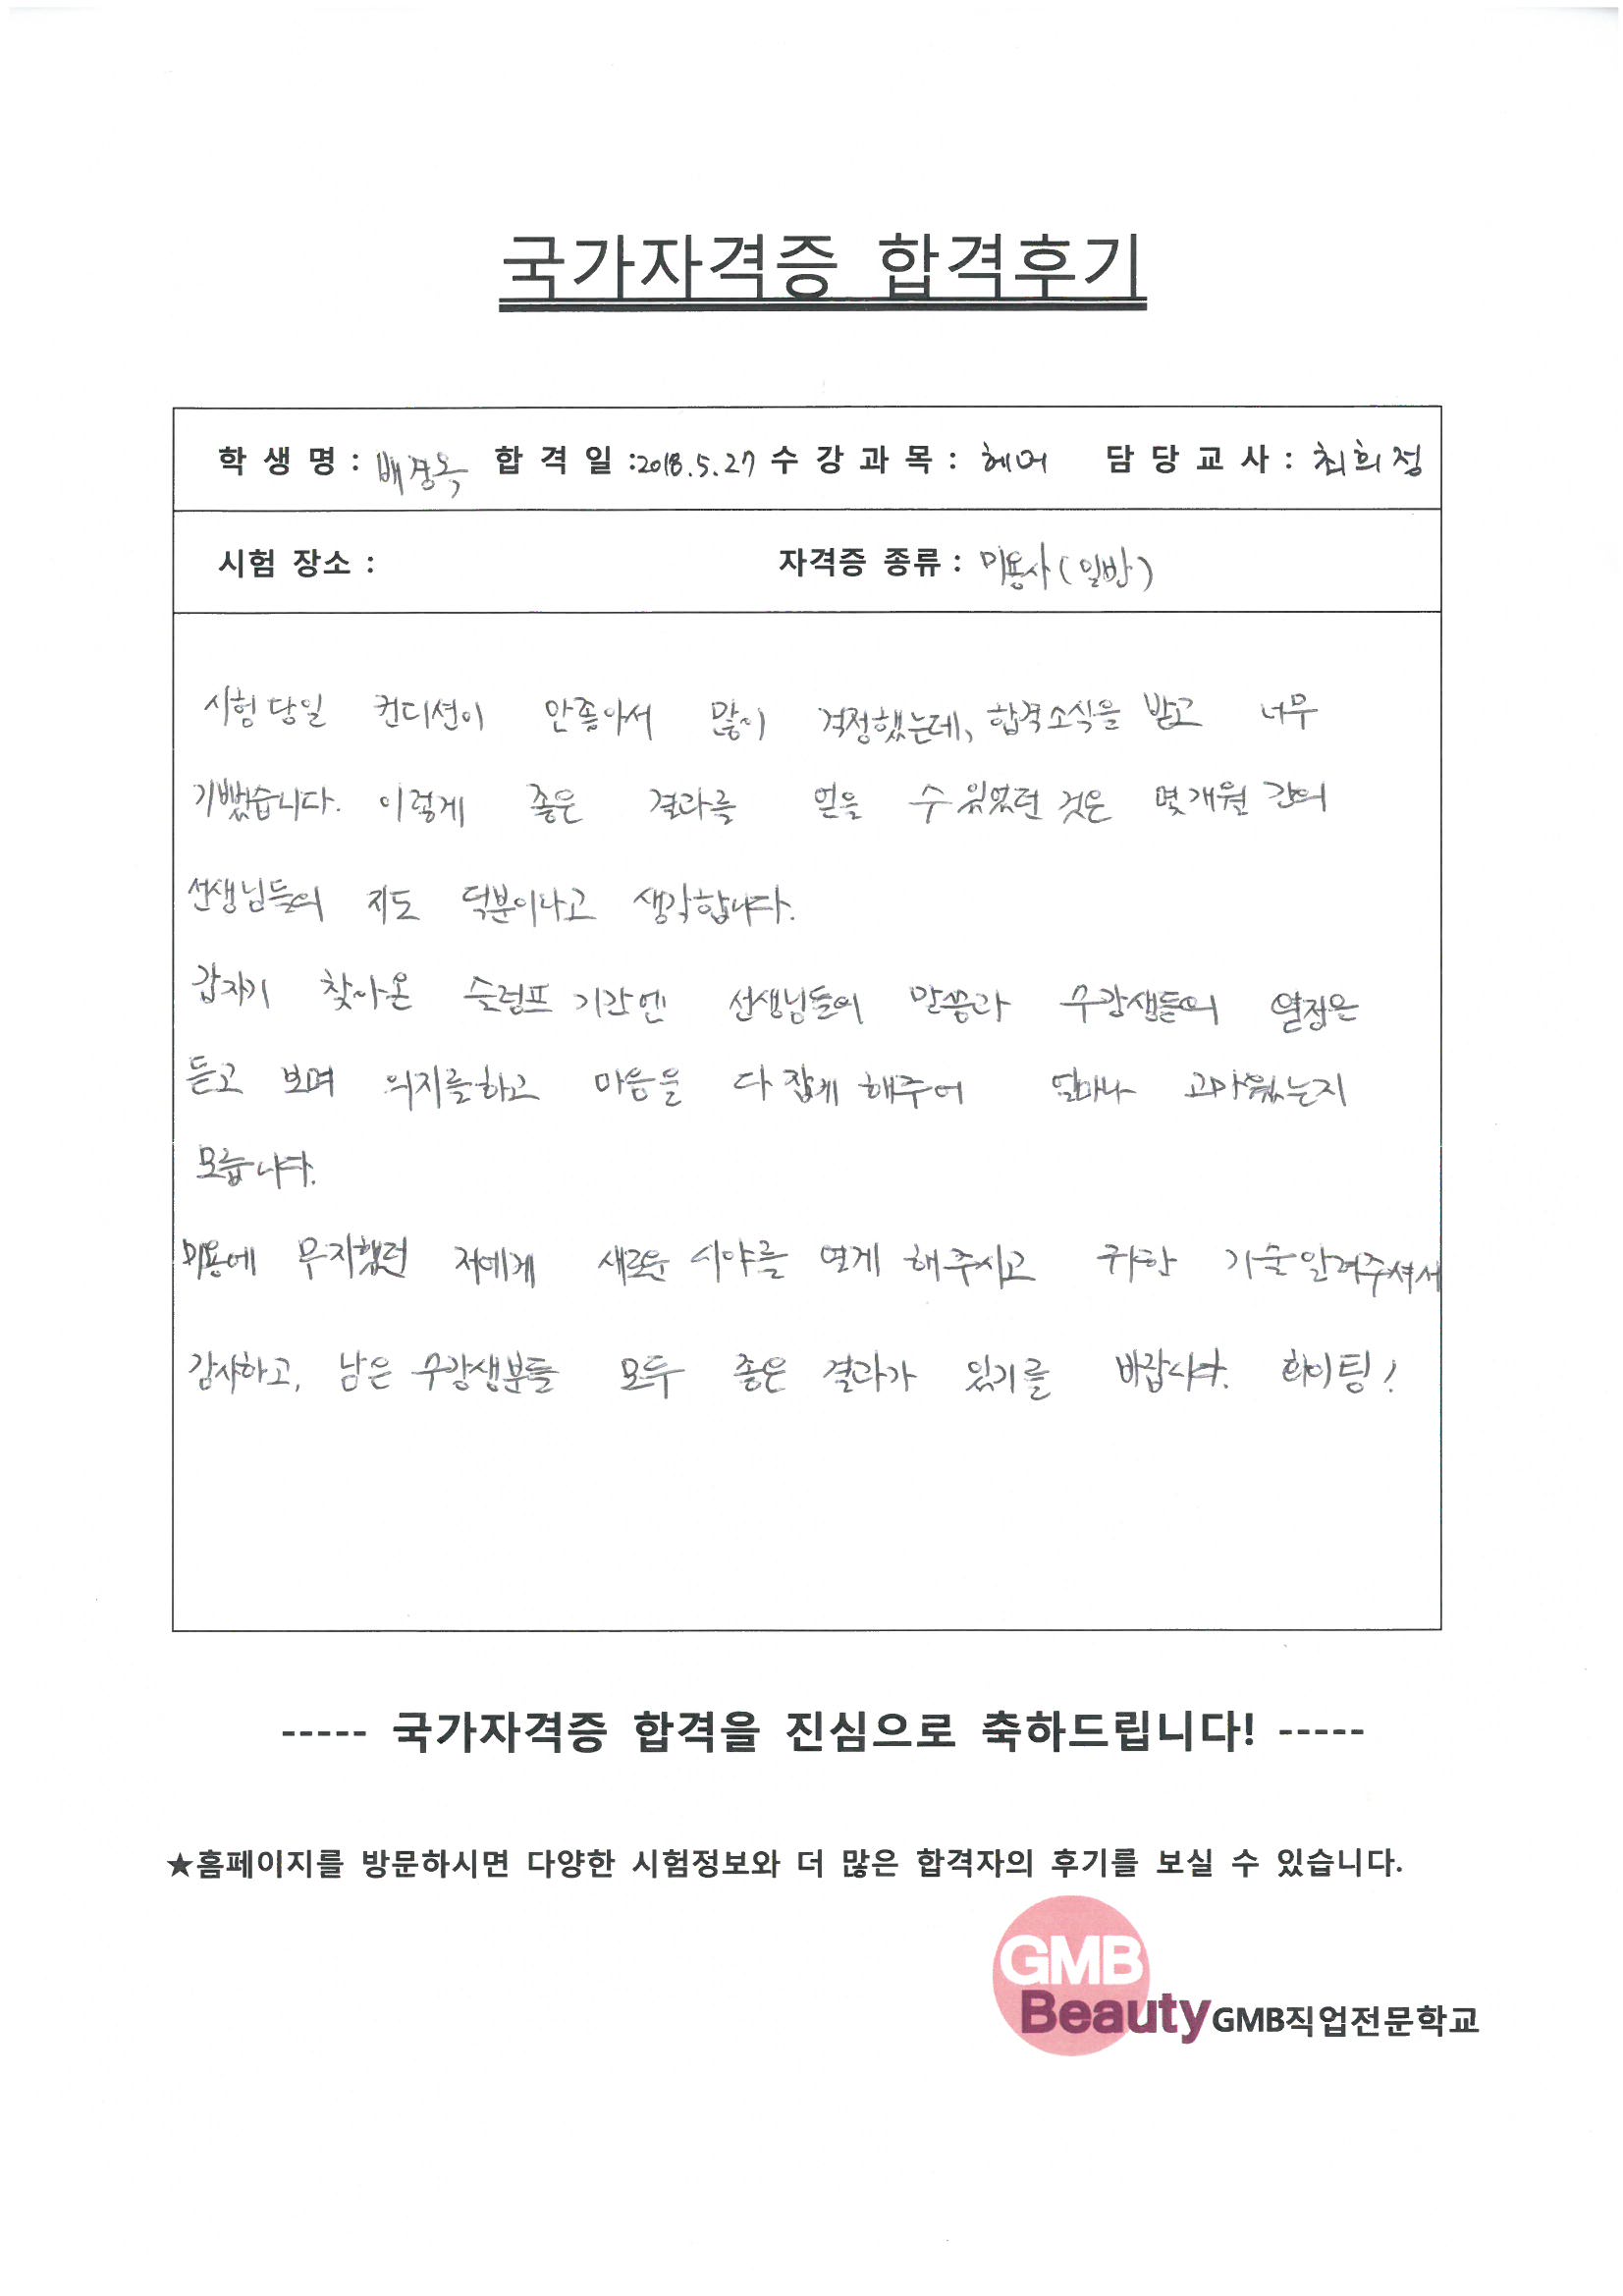 국가자격증 합격후기
학 생 명 : 배경옥 합 격 일 :2018.5.27 수 강 과 목 : 헤어 담 당 교 사 : 최희정
시험 장소 : 자격증 종류 : 미용사(일반)
시험당일 컨디션이 안좋아서 많이 걱정했는데, 합격소식을 받고 너무
기뻤습니다. 이렇게 좋은 결과를 얻을 수 있었던 것은 몇개월 간의
선생님들의 지도 덕분이라고 생각합니다.
갑자기 찾아온 슬럼프 기간엔 선생님들의 말씀과 수강생들의 열정은
듣고 보며 의지를하고 마음을 다 잡게 해주어 얼마나 고마웠는지
모릅니다.
미용에 무지했던 저에게 새로운 시야를 열게 해주시고 귀한 기술알려주셔서
감사하고, 남은 수강생분들 모두 좋은 결과가 있기를 바랍니다. 화이팅!
----- 국가자격증 합격을 진심으로 축하드립니다! -----
★홈페이지를 방문하시면 다양한 시험정보와 더 많은 합격자의 후기를 보실 수 있습니다.
GMB
Beauty GMB직업전문학교